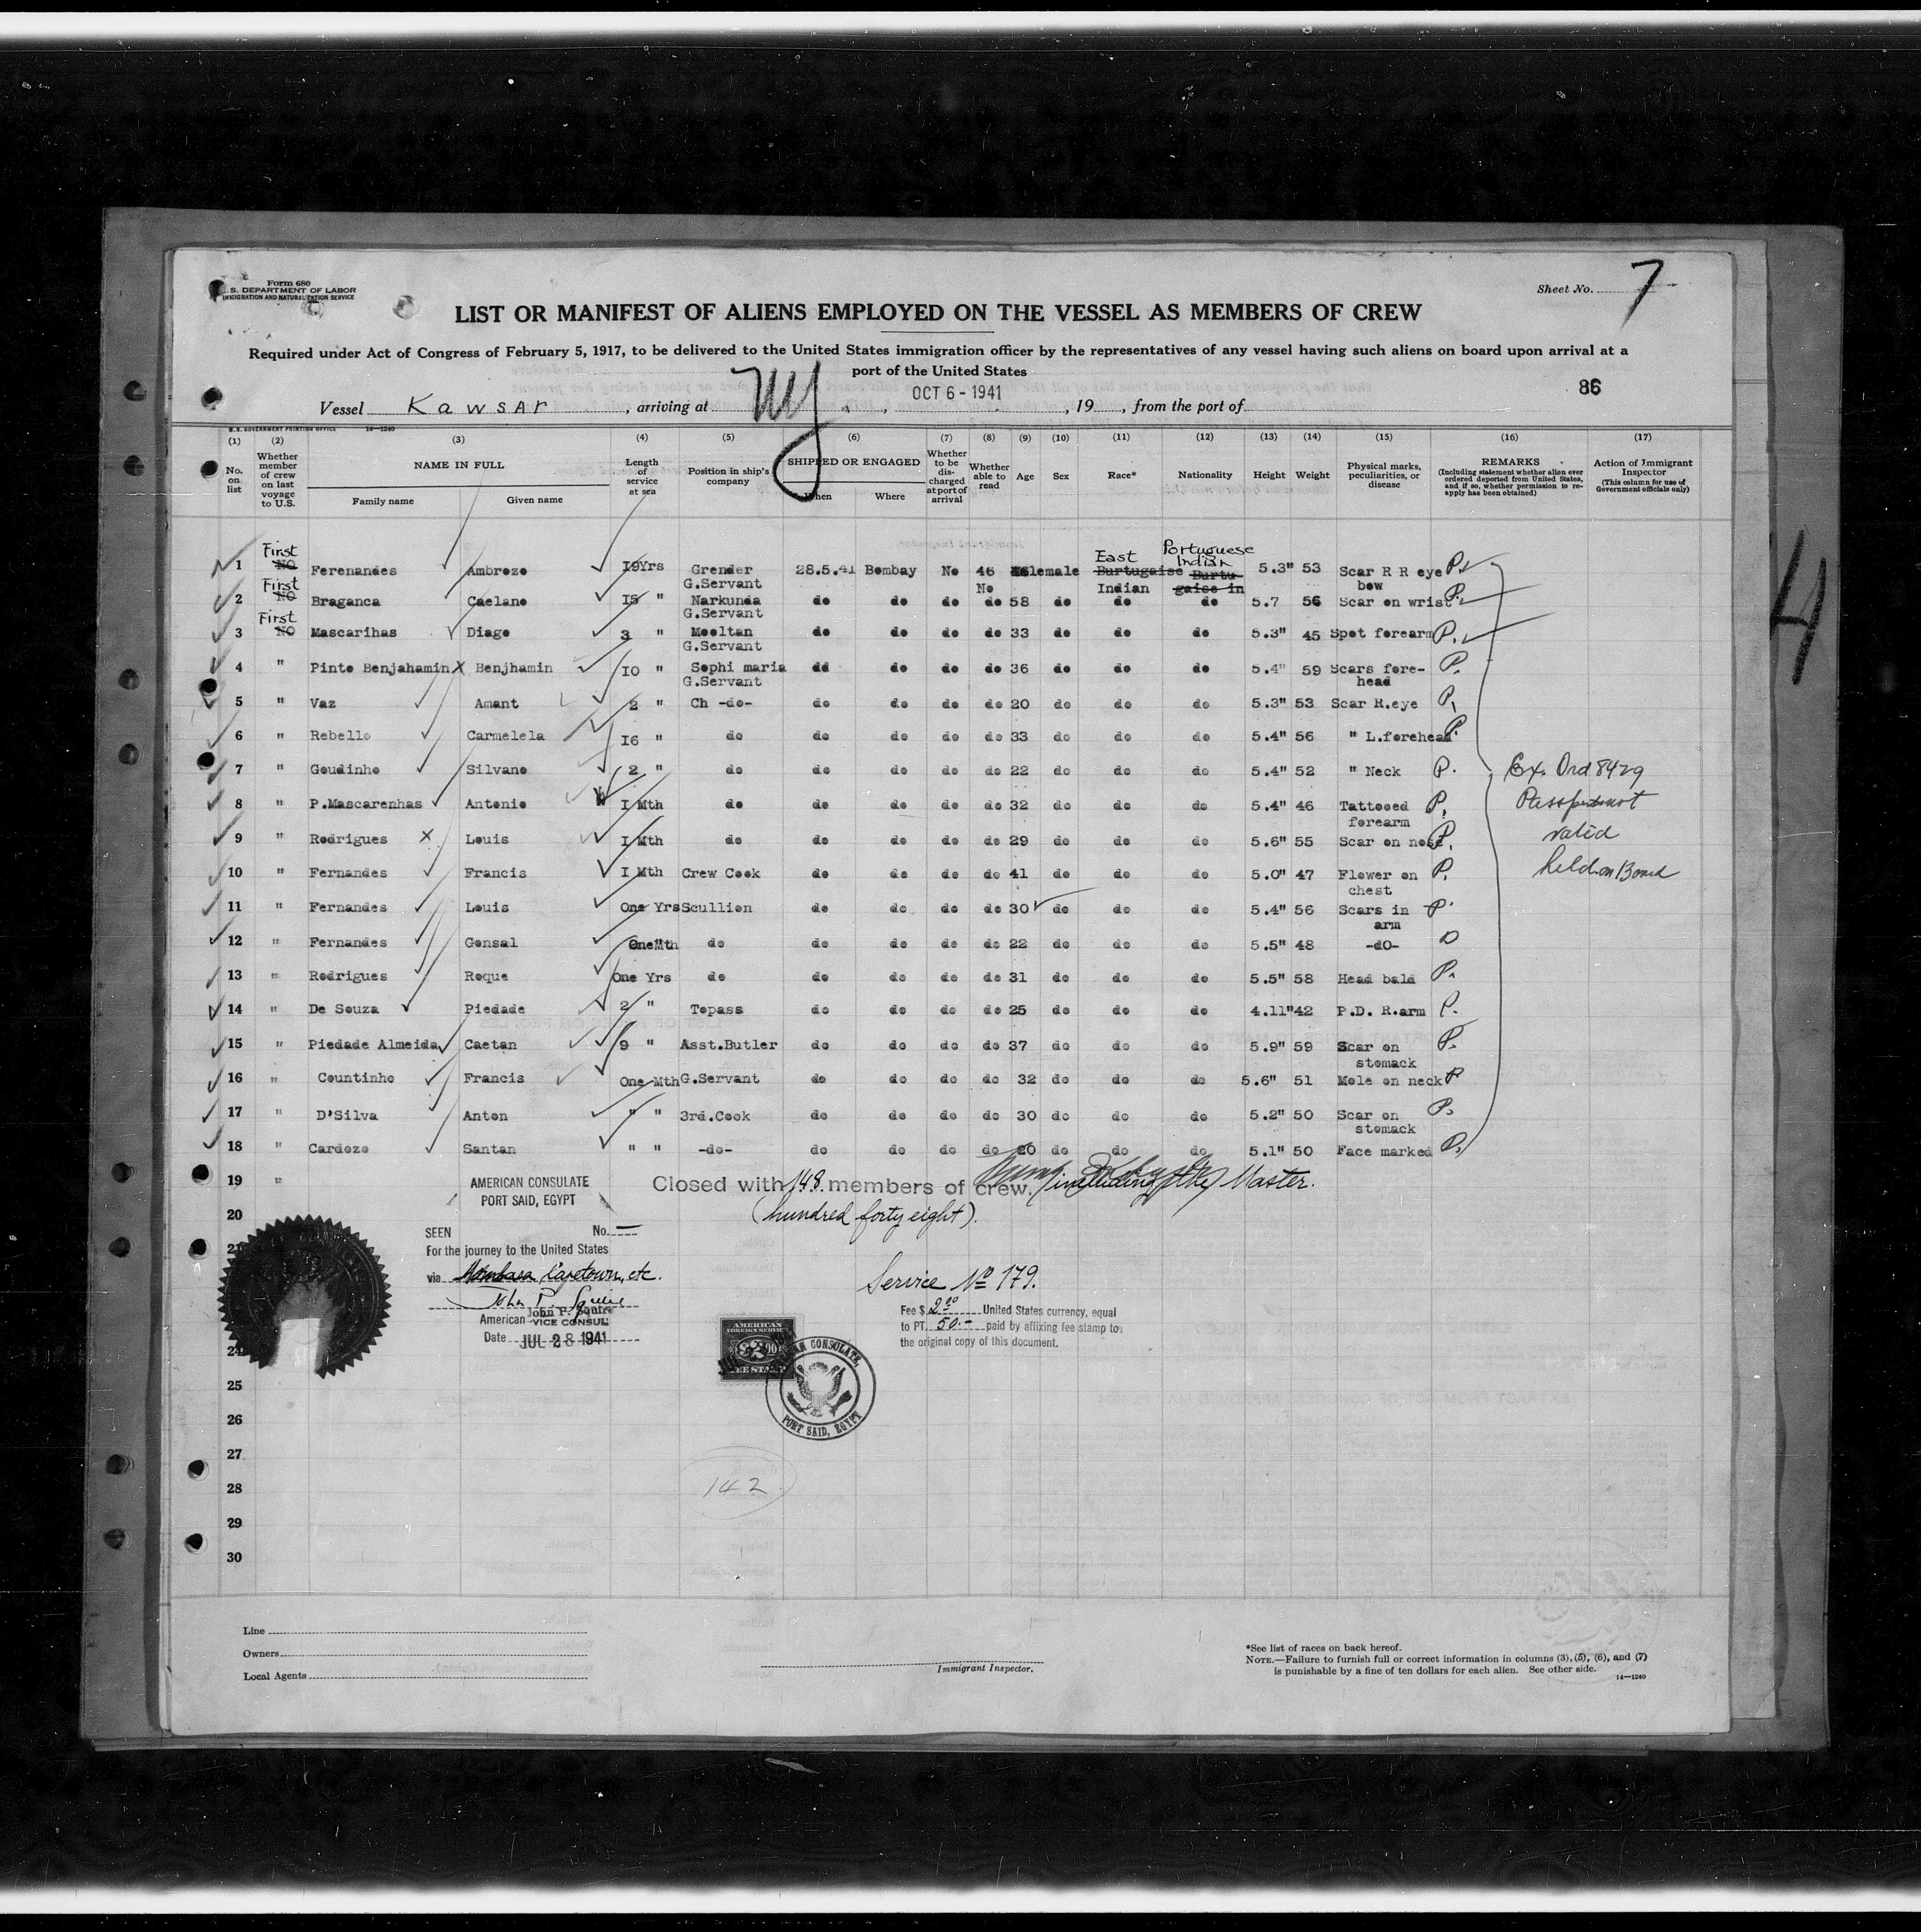 Form 680
U. S. DEPARTMENT OF LABOR
IMMIGRATION AND NATURALIZATION SERVICE
Sheet No. 7
LIST OR MANIFEST OF ALIENS EMPLOYED ON THE VESSEL AS MEMBERS OF CREW
Required under Act of Congress of February 5, 1917, to be delivered to the United States immigration officer by the representatives of any vessel having such aliens on board upon arrival at a
port of the United States
86
Vessel Kawsar, arriving at NY, OCT 6 - 1941, 19 , from the port of
U.S. GOVERNMENT PRINTING OFFICE 14—1240
(1) (2) (3) (4) (5) (6) (7) (8) (9) (10) (11) (12) (13) (14) (15) (16) (17)
No. on list
Whether member of crew on last voyage to U.S.
NAME IN FULL
Family name Given name
Length of service at sea
Position in ship's company
SHIPPED OR ENGAGED
When Where
Whether to be discharged at port of arrival
Whether able to read
Age Sex Race* Nationality Height Weight
Physical marks, peculiarities, or disease
REMARKS
(Including statement whether alien ever ordered deported from United States, and if so, whether permission to reapply has been obtained)
Action of Immigrant Inspector
(This column for use of Government officials only)
First East Portuguese Indian
1 NO Ferenandes Ambroze I9Yrs Grender 28.5.41 Bombay No 46 male Burtugaise Burtu- 5.3" 53 Scar R R eye P.
First G.Servant No Indian gaise in bow
2 NO Braganca Caelano I5 " Narkunda do do do do 58 do do do 5.7 56 Scar on wrist P.
First G.Servant
3 NO Mascarihas Diago 3 " Mooltan do do do do 33 do do do 5.3" 45 Spot forearm P.
G.Servant
4 " Pinto Benjahamin X Benjhamin I0 " Sophi maria dd do do do 36 do do do 5.4" 59 Scars fore- P.
G.Servant head
5 " Vaz Amant 2 " Ch -do- do do do do 20 do do do 5.3" 53 Scar R.eye P.
6 " Rebello Carmelela I6 " do do do do do 33 do do do 5.4" 56 " L.forehead P.
7 " Goudinho Silvano 2 " do do do do do 22 do do do 5.4" 52 " Neck P. Ex. Ord 8429
8 " P.Mascarenhas Antonio I Mth do do do do do 32 do do do 5.4" 46 Tattooed P. Passport not
forearm
9 " Rodrigues X Louis I Mth do do do do do 29 do do do 5.6" 55 Scar on nose P. valid
10 " Fernandes Francis I Mth Crew Cook do do do do 41 do do do 5.0" 47 Flower on P. held on Board
chest
11 " Fernandes Louis One Yrs Scullion do do do do 30 do do do 5.4" 56 Scars in P.
arm
12 " Fernandes Gonsal One Mth do do do do do 22 do do do 5.5" 48 -dO-
13 " Rodrigues Roque One Yrs do do do do do 31 do do do 5.5" 58 Head bald P.
14 " De Souza Piedade 2 " Topass do do do do 25 do do do 4.11" 42 P.D. R.arm P.
15 " Piedade Almeida Caetan 9 " Asst.Butler do do do do 37 do do do 5.9" 59 Scar on P.
stomack
16 " Countinho Francis One Mth G.Servant do do do do 32 do do do 5.6" 51 Mole on neck P
17 " D'Silva Anton " " 3rd.Cook do do do do 30 do do do 5.2" 50 Scar on P.
stomack
18 " Cardozo Santan " " -do- do do do do 20 do do do 5.1" 50 Face marked P.
19 "
AMERICAN CONSULATE
PORT SAID, EGYPT
Closed with 148 members of crew, including the Master.
20 (hundred forty eight).
SEEN No. —
21 For the journey to the United States
via Mombasa Capetown, etc.
Service No 179.
John P. Squire
John P. Squire
American VICE CONSUL
Date JUL 28 1941
Fee $ 2.00 United States currency, equal
to PT. 50.- paid by affixing fee stamp to
the original copy of this document.
AMERICAN
FOREIGN SERVICE
$2.00
FEE STAMP
AMERICAN CONSULATE,
PORT SAID, EGYPT
24
25
26
27
142
28
29
30
Line
Owners
Local Agents
Immigrant Inspector.
*See list of races on back hereof.
NOTE.—Failure to furnish full or correct information in columns (3), (5), (6), and (7)
is punishable by a fine of ten dollars for each alien. See other side.
14—1240
4